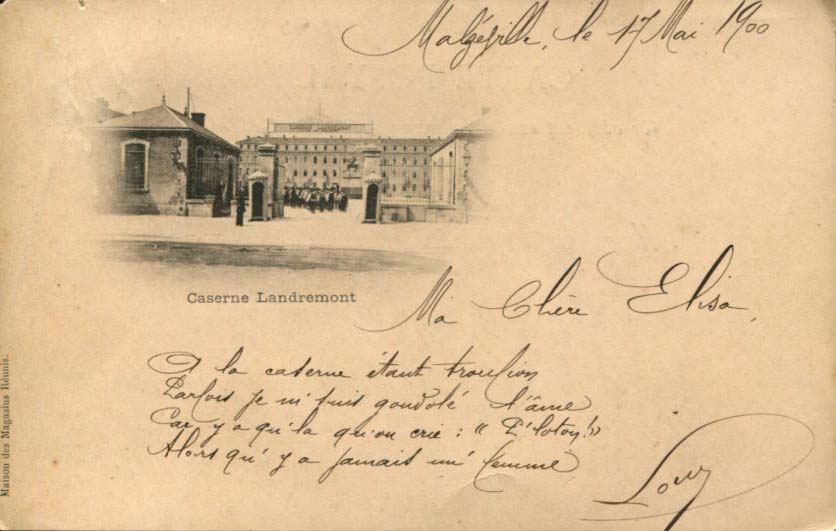 Malzéville, le 17 Mai 1900
Caserne Landremont
Ma Chère Elisa,
A la caserne étant troufion
Parfois je m'suis gondolé l'âme
Car y a qu'là qu'on crie : «
Alors qu'y a jamais un' femme
Maison des Magasins Réunis.